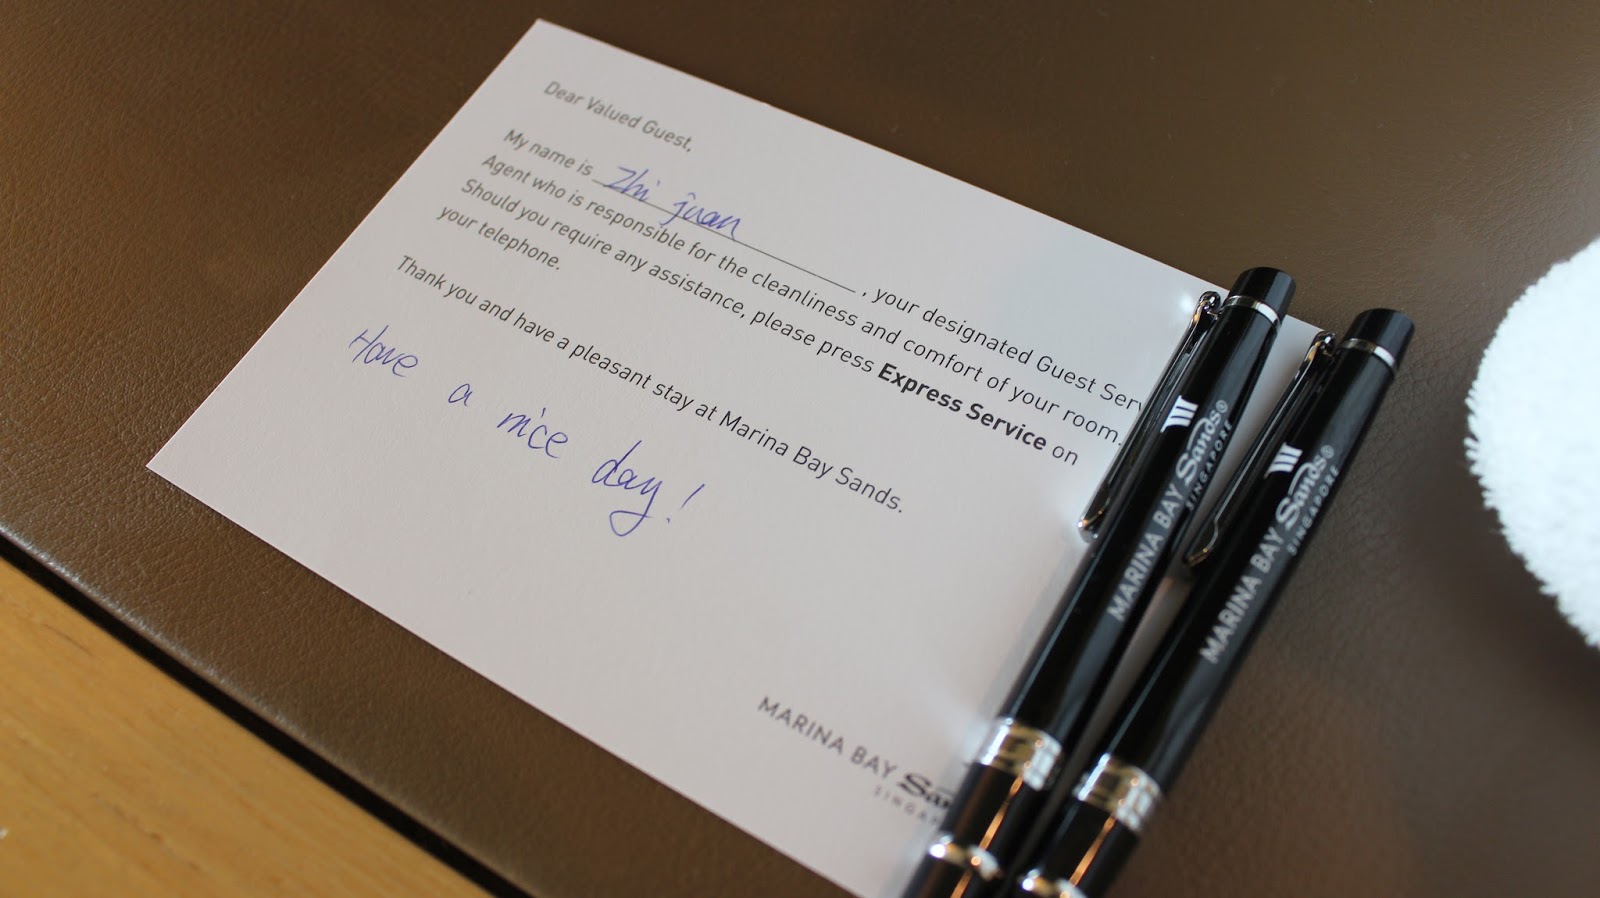 Dear Valued Guest,
My name is Zhi juan, your designated Guest Serv
Agent who is responsible for the cleanliness and comfort of your room.
Should you require any assistance, please press Express Service on
your telephone.
Thank you and have a pleasant stay at Marina Bay Sands.
Have a nice day!
MARINA BAY San
SINGAP
MARINA BAY Sands®
SINGAPORE
MARINA BAY Sands®
SINGAPORE